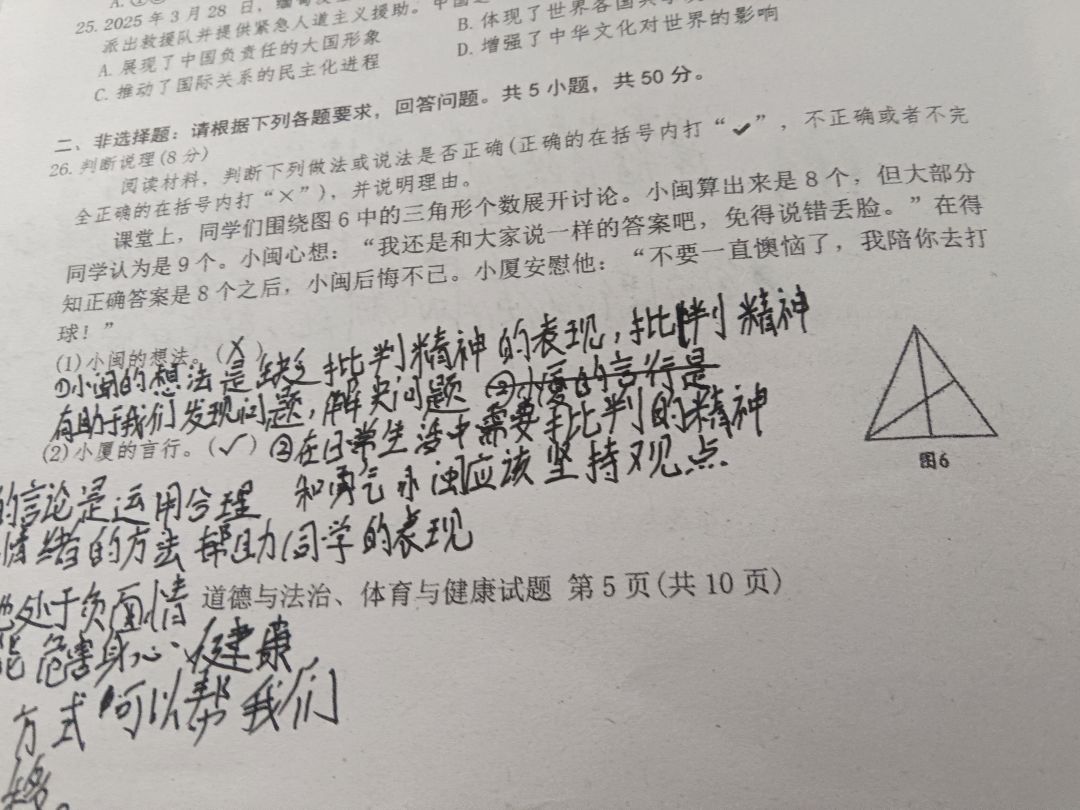 A. ①②
25. 2025年3月28日，缅甸发
派出救援队并提供紧急人道主义援助。中国
A. 展现了中国负责任的大国形象
B. 体现了世界各国
C. 推动了国际关系的民主化进程
D. 增强了中华文化对世界的影响
二、非选择题：请根据下列各题要求，回答问题。共5小题，共50分。
26. 判断说理(8分)
阅读材料，判断下列做法或说法是否正确(正确的在括号内打“✓”，不正确或者不完
全正确的在括号内打“×”)，并说明理由。
课堂上，同学们围绕图6中的三角形个数展开讨论。小闽算出来是8个，但大部分
同学认为是9个。小闽心想：“我还是和大家说一样的答案吧，免得说错丢脸。”在得
知正确答案是8个之后，小闽后悔不已。小厦安慰他：“不要一直懊恼了，我陪你去打
球！”
(1)小闽的想法。(×)
①小闽的想法是缺乏批判精神的表现，批判精神
有助于我们发现问题，解决问题 ②小厦的言行是
(2)小厦的言行。(✓) ②在日常生活中需要批判的精神
和勇气 小闽应该坚持观点
的言论是运用合理
情绪的方法 帮助同学的表现
处于负面情
能危害身心健康
方式可以帮我们
图6
道德与法治、体育与健康试题 第5页(共10页)